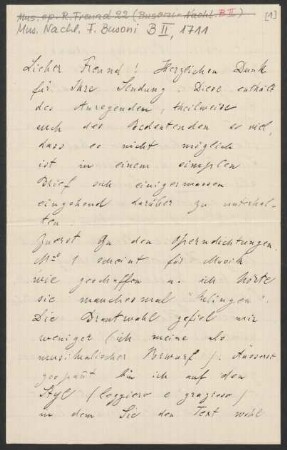 Mus. ep. R. Freund 22 (Busoni-Nachl. B II) [1]
Mus. Nachl. F. Busoni B II, 1711
Lieber Freund! Herzlichen Dank
für Ihre Sendung. Diese enthält
des Anregenden, theilweise
auch des Bedeutenden so viel,
dass es nicht möglich
ist in einem simplen
Brief sich einigermassen
eingehend darüber zu unterhal-
ten.
Zuerst zu den Operndichtungen.
No 1 scheint für Musik
wie geschaffen u. ich hörte
sie manchesmal "klingen".
Die Brautwahl gefiel mir
weniger (ich meine als
musikalischer Vorwurf). Äusserst
gespannt bin ich auf den
Styl (leggiero e grazioso)
in dem Sie den Text wohl